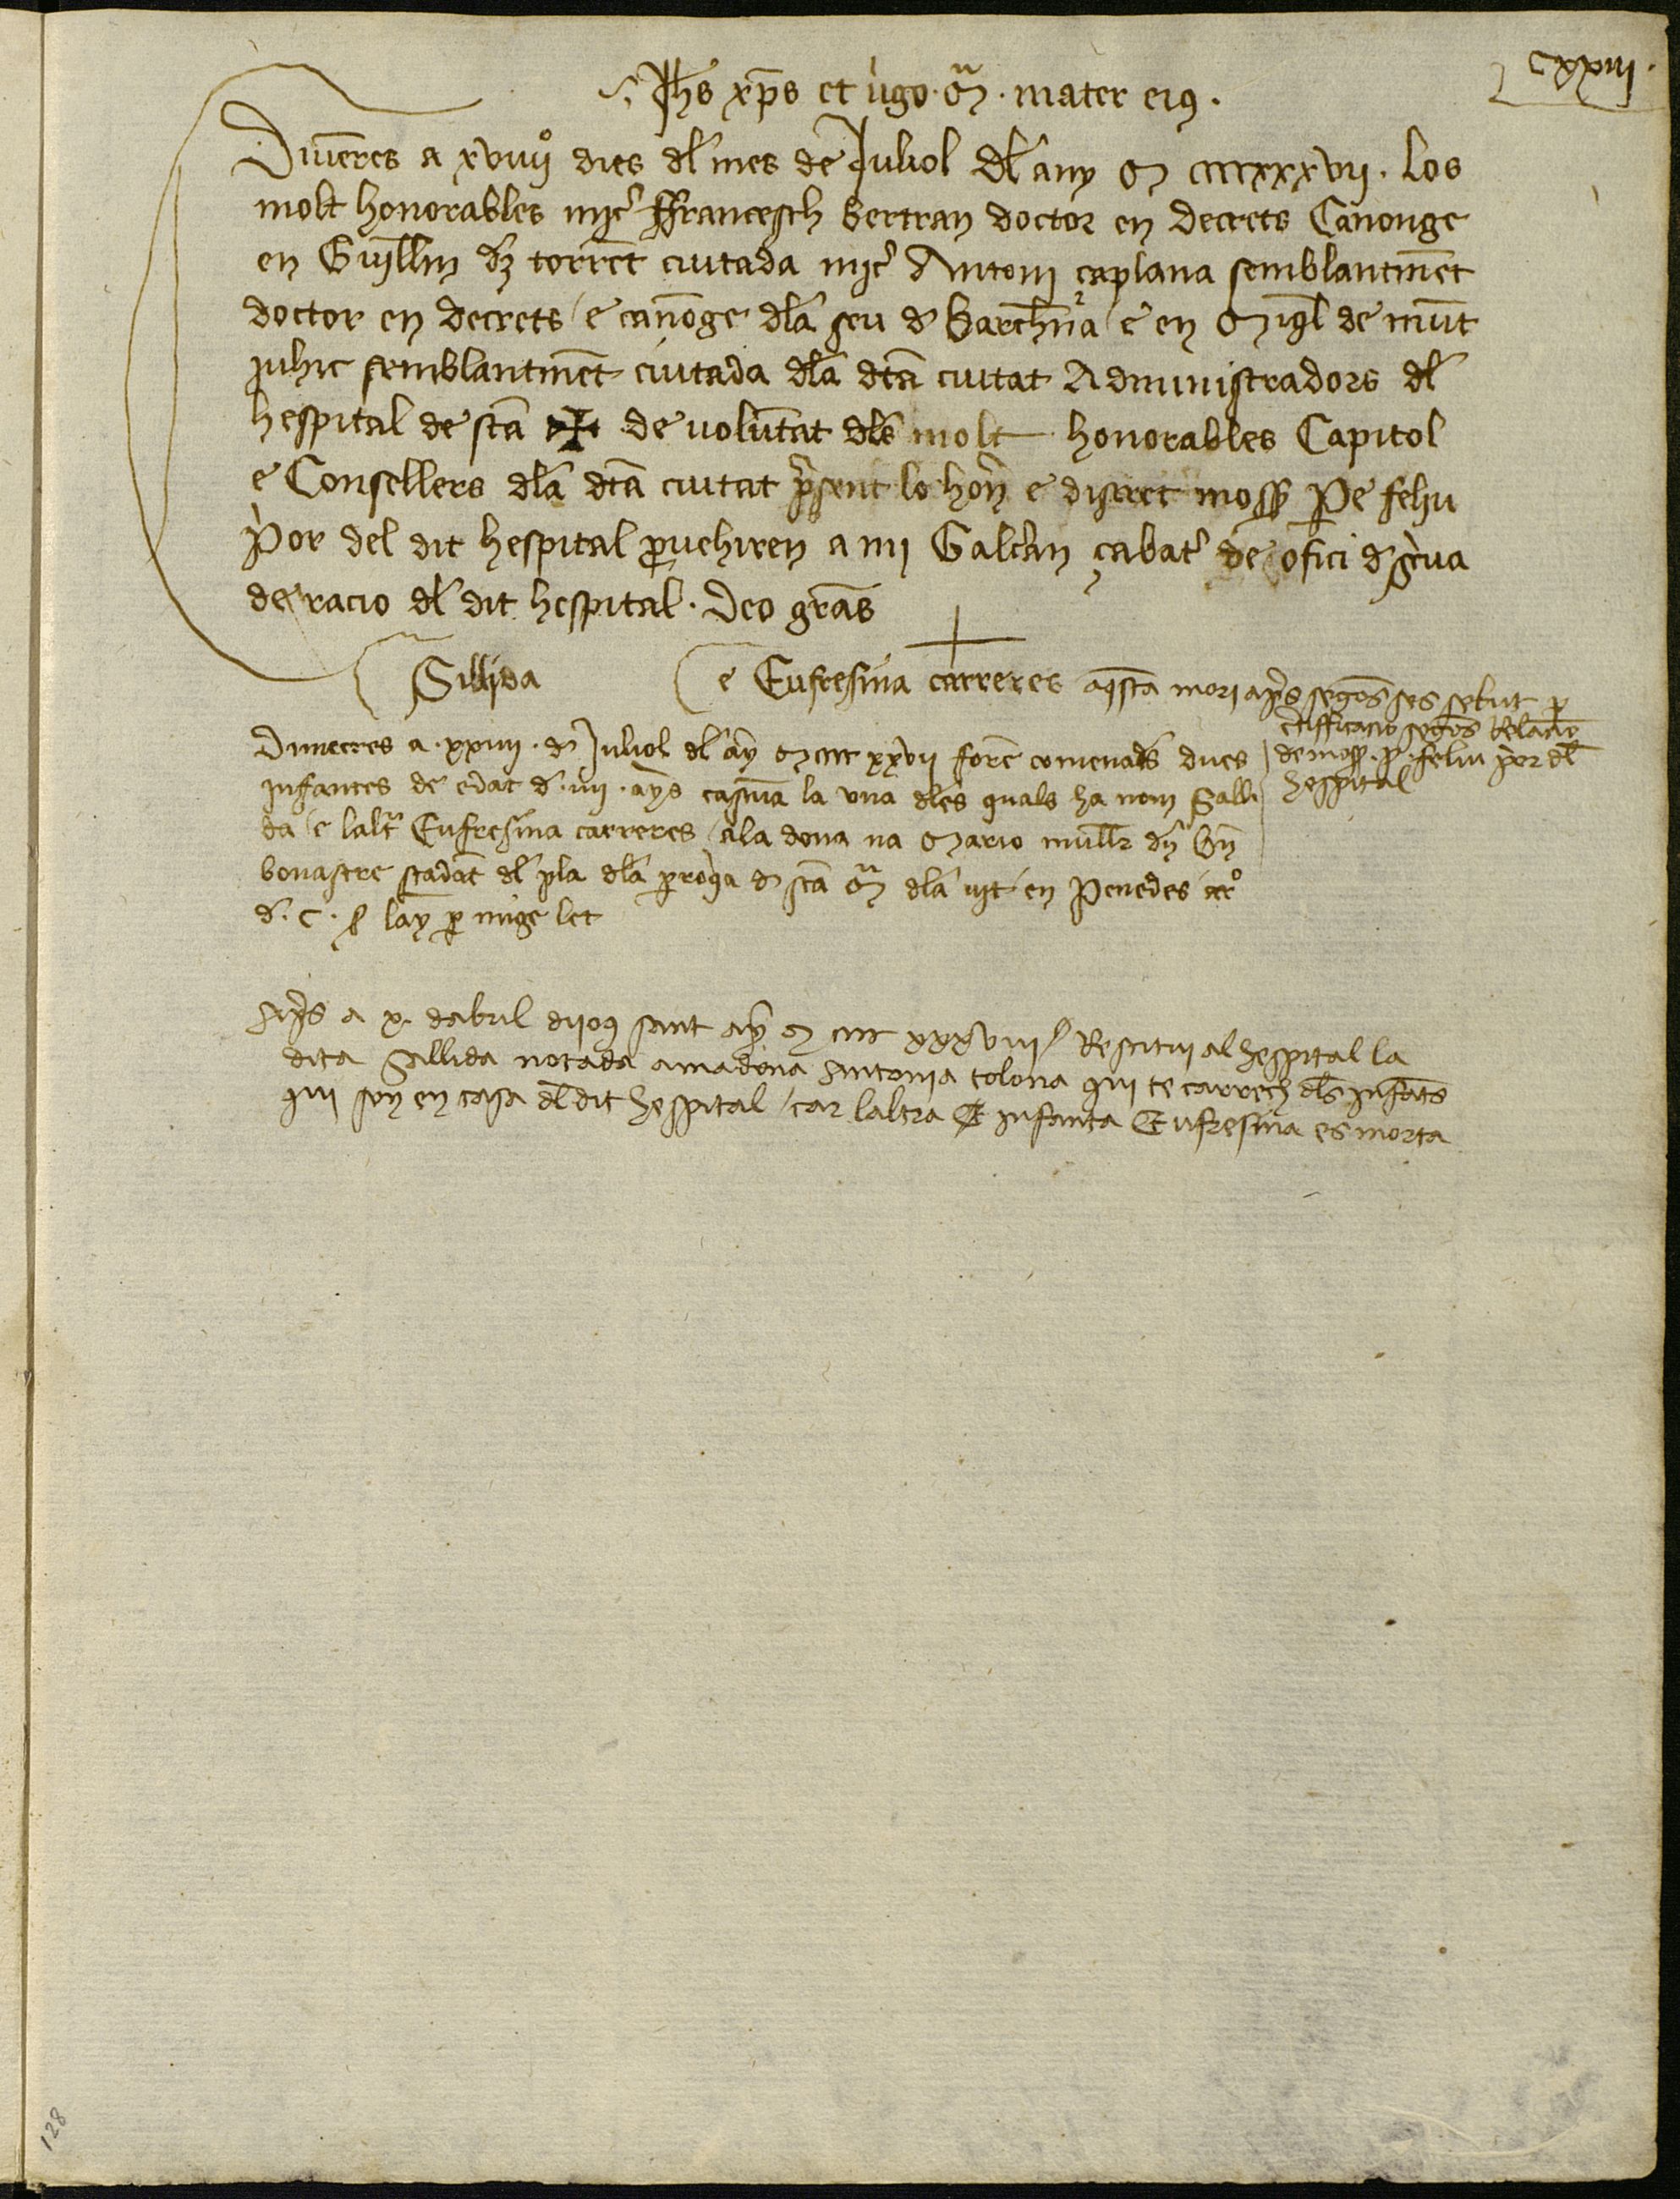 cxxiiii.
Jhs xps et virgo. Ma. mater eius.
Divenres a xviiiio dies del mes de Juliol del any M ccccxxxvii. Los
molt honorables micer ffrancesch bertran doctor en decrets Canonge
en Guillm dez torrent ciutada micer Antoni çaplana semblantment
doctor en decrets / e canonge dela seu de Barchna / e en Miquel de munt
juhic semblantment ciutada dela dta ciutat Administradors del
hespital de sta ✠ de voluntat dels molt honorables Capitol
e Consellers dela dta ciutat present lo honr e discret mossen Pere feliu
prior del dit hespital provehiren a mi Galceran çabater de ofici de scriva
de racio del dit hespital. Deo gras
Sillida
e Eufresina carreres aquesta mori apres segons ses sebut per
certifficacio segons Relacio
de moss. P. feliu prior del
hespital
Dimecres a . xxiiii . de Juliol del any M cccc xxxvii foren comenades dues
infantes de edat de . iiii . anys cascuna la una deles quals ha nom Salli
da / e laltra Eufresina carreres / ala dona na Maria muller den
bonastre stadant del pla dela parroquia de sta Ma dela vit en Penedes
d. C. s lany per mige let
Apres a x. dabril dijous sant any M cccc xxxviii / Restitui al hespital la
dita Sallida notada a madona Antonia tolona qui te carrech dels infants
qui son en casa del dit hespital / car laltra infanta Eufresina es morta
128